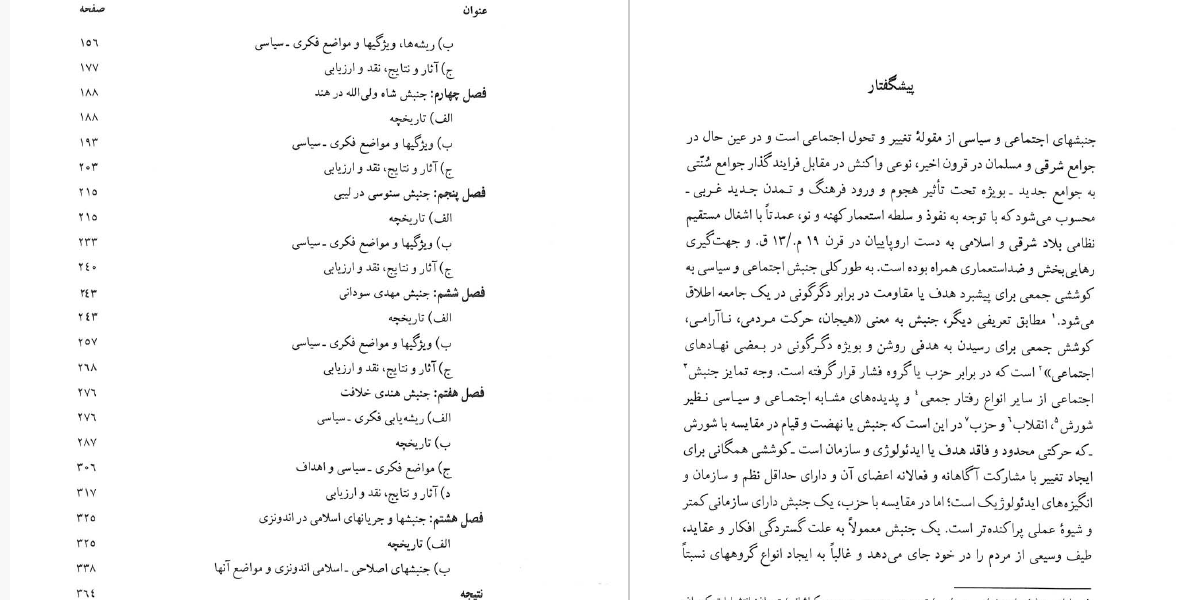 پیشگفتار
جنبشهای اجتماعی و سیاسی از مقولهٔ تغییر و تحول اجتماعی است و در عین حال در
جوامع شرقی و مسلمان در قرون اخیر، نوعی واکنش در مقابل فرایند گذار جوامع سُنّتی
به جوامع جدید ـ بویژه تحت تأثیر هجوم و ورود فرهنگ و تمدن جدید غربی ـ
محسوب می‌شود که با توجه به نفوذ و سلطه استعمار کهنه و نو، عمدتاً با اشغال مستقیم
نظامی بلاد شرقی و اسلامی به دست اروپاییان در قرن ۱۹ م./۱۳ ق. و جهت‌گیری
رهایی‌بخش و ضداستعماری همراه بوده است. به طور کلی جنبش اجتماعی و سیاسی به
کوششی جمعی برای پیشبرد هدف یا مقاومت در برابر دگرگونی در یک جامعه اطلاق
می‌شود.۱ مطابق تعریفی دیگر، جنبش به معنی «هیجان، حرکت مردمی، ناآرامی،
کوشش جمعی برای رسیدن به هدفی روشن و بویژه دگرگونی در بعضی نهادهای
اجتماعی»۲ است که در برابر حزب یا گروه فشار قرار گرفته است. وجه تمایز جنبش۳
اجتماعی از سایر انواع رفتار جمعی۴ و پدیده‌های مشابه اجتماعی و سیاسی نظیر
شورش۵، انقلاب۶ و حزب۷ در این است که جنبش یا نهضت و قیام در مقایسه با شورش
ـ که حرکتی محدود و فاقد هدف یا ایدئولوژی و سازمان است ـ کوششی همگانی برای
ایجاد تغییر با مشارکت آگاهانه و فعالانه اعضای آن و دارای حداقل نظم و سازمان و
انگیزه‌های ایدئولوژیک است؛ اما در مقایسه با حزب، یک جنبش دارای سازمانی کمتر
و شیوهٔ عملی پراکنده‌تر است. یک جنبش معمولاً به علت گستردگی افکار و عقاید،
طیف وسیعی از مردم را در خود جای می‌دهد و غالباً به ایجاد انواع گروههای نسبتاً
عنوان صفحه
ب) ریشه‌ها، ویژگیها و مواضع فکری ـ سیاسی ۱۵۶
ج) آثار و نتایج، نقد و ارزیابی ۱۷۷
فصل چهارم: جنبش شاه ولی‌الله در هند ۱۸۸
الف) تاریخچه ۱۸۸
ب) ویژگیها و مواضع فکری ـ سیاسی ۱۹۳
ج) آثار و نتایج، نقد و ارزیابی ۲۰۳
فصل پنجم: جنبش سنوسی در لیبی ۲۱۵
الف) تاریخچه ۲۱۵
ب) ویژگیها و مواضع فکری ـ سیاسی ۲۳۳
ج) آثار و نتایج، نقد و ارزیابی ۲۴۰
فصل ششم: جنبش مهدی سودانی ۲۴۳
الف) تاریخچه ۲۴۳
ب) ویژگیها و مواضع فکری ـ سیاسی ۲۵۷
ج) آثار و نتایج، نقد و ارزیابی ۲۶۸
فصل هفتم: جنبش هندی خلافت ۲۷۶
الف) ریشه‌یابی فکری ـ سیاسی ۲۷۶
ب) تاریخچه ۲۸۷
ج) مواضع فکری ـ سیاسی و اهداف ۳۰۶
د) آثار و نتایج، نقد و ارزیابی ۳۱۷
فصل هشتم: جنبشها و جریانهای اسلامی در اندونزی ۳۲۵
الف) تاریخچه ۳۲۵
ب) جنبشهای اصلاحی ـ اسلامی اندونزی و مواضع آنها ۳۳۸
نتیجه ۳۶۴